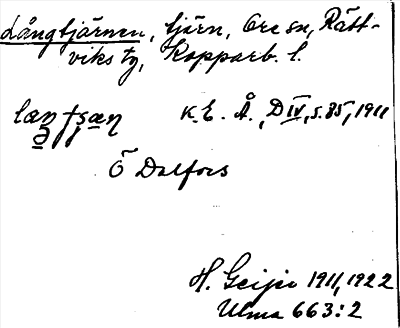 Långtjärnen, tjärn, Ore sn, Rätt-
viks tg, Kopparb. l.
K. E. Å., D IV, s. 85, 1911
Ö Dalfors
H. Geijer 1911, 1922
Ulma 663:2